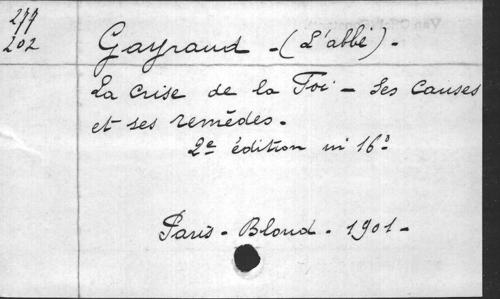 277
202
Gayraud - (L'abbé) -
La Crise de la Foi - Ses Causes
et ses remèdes -
2e édition in 16°
Paris - Bloud - 1901 -